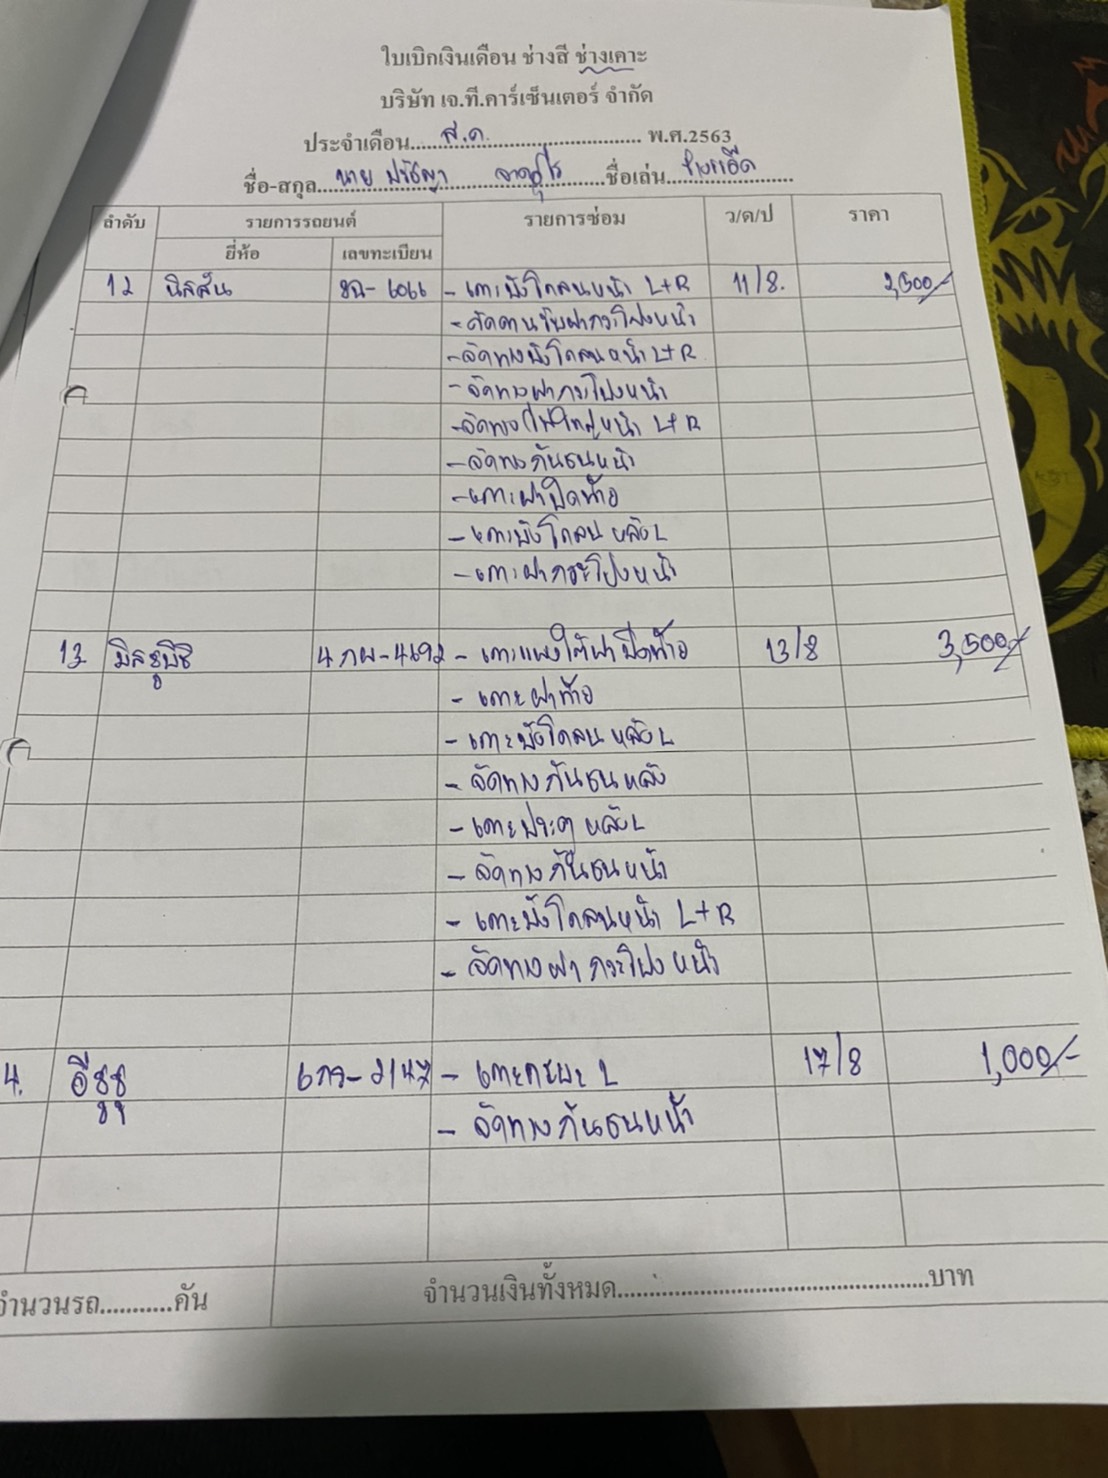 ใบเบิกเงินเดือน ช่างสี ช่างเคาะ
บริษัท เจ.ที.คาร์เซ็นเตอร์ จำกัด
ประจำเดือน.....ส.ค...... พ.ศ.2563
ชื่อ-สกุล....นาย ปรัชญา ......ชื่อเล่น......
ลำดับ รายการรถยนต์ รายการซ่อม ว/ด/ป ราคา
ยี่ห้อ เลขทะเบียน
12 นิสสัน ฆฉ-6066 - เคาะบังโคลนหน้า L+R 11/8. 2,500/-
- ดัดคานรับฝากระโปงหน้า
- จัดทางบังโคลนหน้า L+R
- จัดทางฝากระโปงหน้า
- จัดทางไฟใหญ่หน้า L+R
- จัดทางกันชนหน้า
- เคาะฝาปิดท้าย
- เคาะบังโคลน หลัง L
- เคาะฝากระโปงหน้า
13 มิตซูบิชิ 4 กผ-4692 - เคาะแผงใต้ฝาปิดท้าย 13/8 3,500/-
- เคาะฝาท้าย
- เคาะบังโคลน หลัง L
- จัดทางกันชนหลัง
- เคาะประตูหลัง L
- จัดทางกันชนหน้า
- เคาะบังโคลนหน้า L+R
- จัดทางฝากระโปงหน้า
4. อีซูซุ 6 กร-2147 - เคาะกระบะ L 17/8 1,000/-
- จัดทางกันชนหน้า
จำนวนรถ...........คัน จำนวนเงินทั้งหมด..........บาท